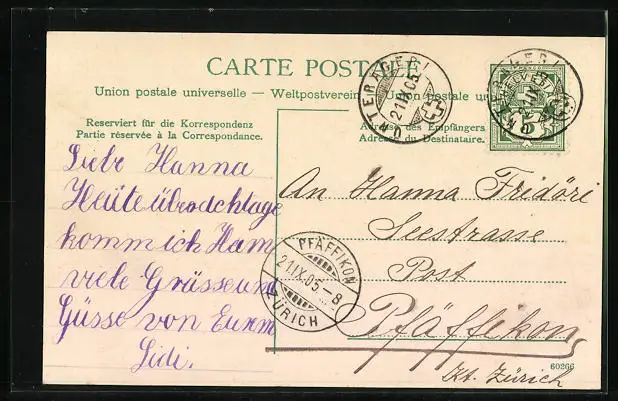 CARTE POSTALE
Union postale universelle. — Weltpostverein. — Union postale un
Reserviert für die Korrespondenz
Partie réservée à la Correspondance.
Adresse des Empfängers
Adresse du Destinataire.
UNTERÄGERI
21.IX.05
HELVETIA
5
Liebe Hanna
Heute über achtage
komm ich Ham
viele Grüsse und
Güsse von Eurem
Lidi.
PFÄFFIKON
21.IX.05.-8
ZÜRICH
An Hanna Fridöri
Seestrasse
Post
Pfäffikon
Kt. Zürich
60266